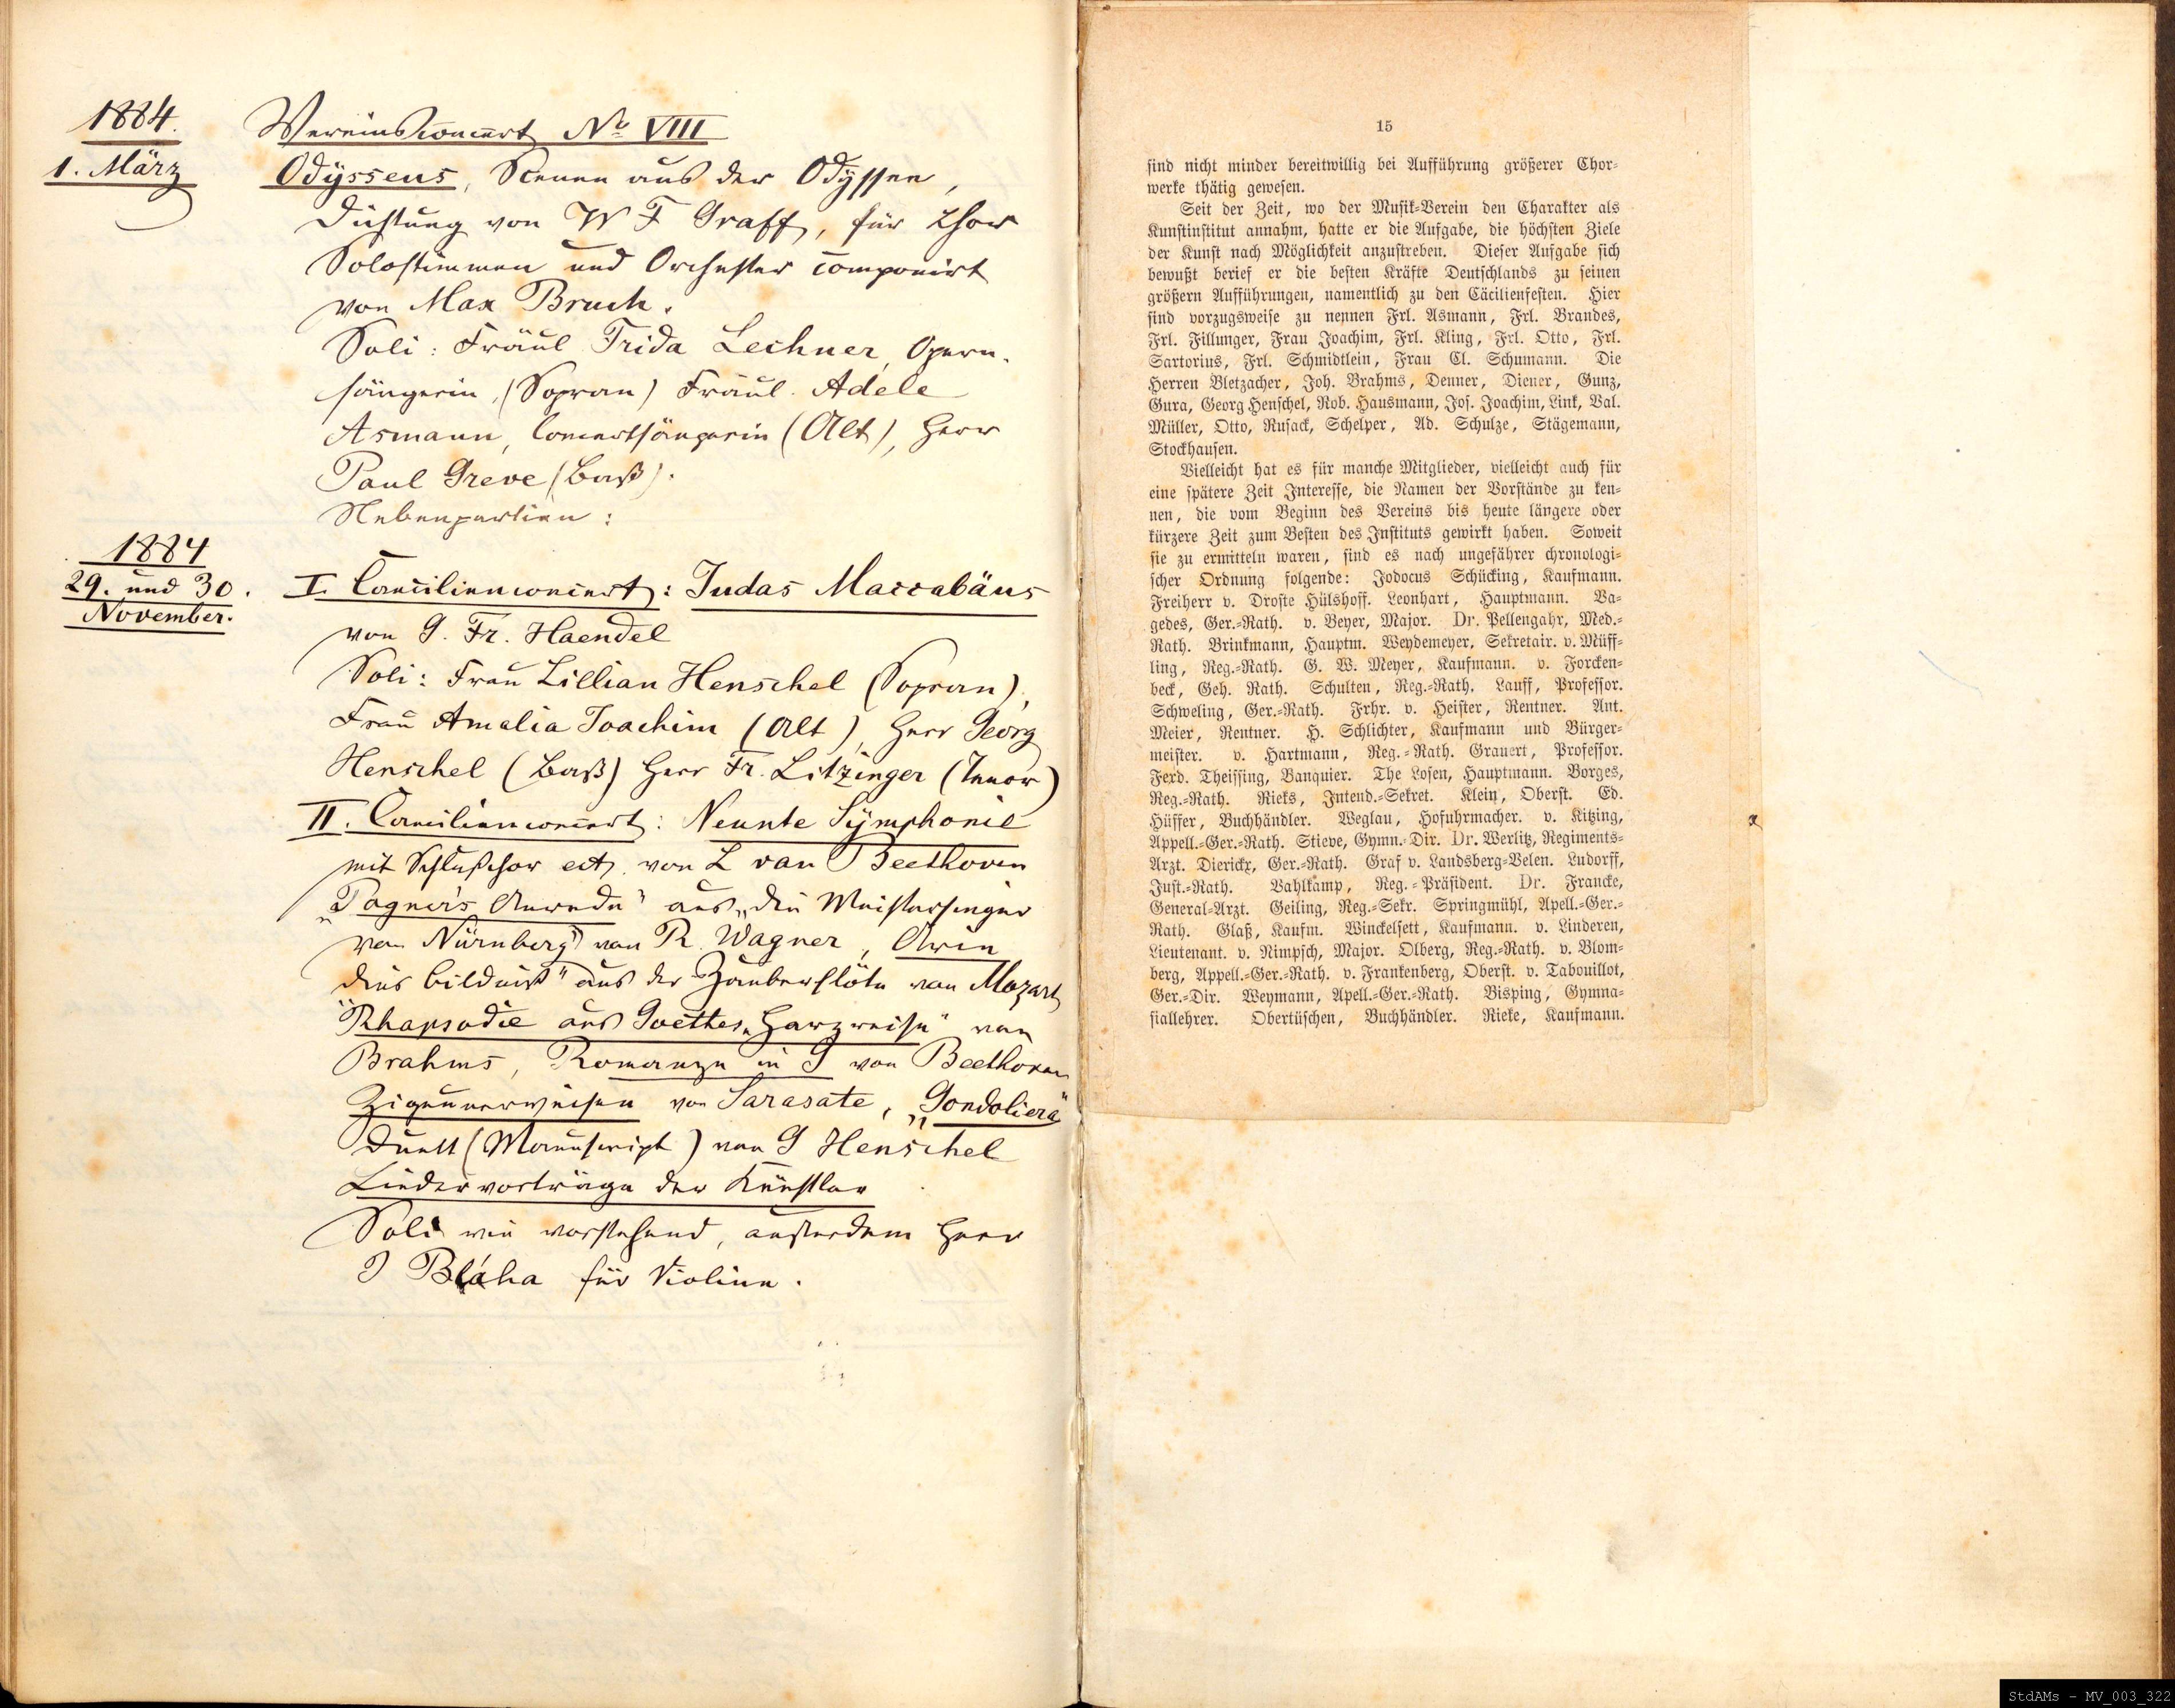 1884.
1. März
Vereinsconcert No VIII
Odÿsseus, Scenen aus der Odÿssee,
Dichtung von W F Graff, für Chor
Solostimmen und Orchester componirt
von Max Bruch.
Soli: Fräul Frida Lechner, Opern-
sängerin, (Sopran) Fräul. Adele
Asmann, Concertsängerin (Alt), Herr
Paul Greve (Baß).
Nebenpartien:
1884
29. und 30.
November.
I. Caecilienconcert: Judas Maccabäus
von G. Fr. Haendel
Soli: Frau Lillian Henschel (Sopran),
Frau Amalia Joachim (Alt), Herr Georg
Henschel (Baß) Herr Fr. Litzinger (Tenor)
II. Caecilienconcert: Neunte Sÿmphonie
mit Schlußchor ect. von L van Beethoven
„Pogner's Anrede" aus „die Meistersinger
von Nürnberg" von R. Wagner, Arie
dies Bildniß" aus der Zauberflöte von Mozart
"Rhapsodie aus Goethes „Harzreise" von
Brahms, Romanze in G von Beethoven
Zigeunerweisen von Sarasate, „Gondoliera"
Duett (Manuscript) von G Henschel
Liedervorträge der Künstler
Soli wie vorstehend, außerdem Herr
J Bláha für Violine.
15
sind nicht minder bereitwillig bei Aufführung größerer Chor-
werke thätig gewesen.
Seit der Zeit, wo der Musik-Verein den Charakter als
Kunstinstitut annahm, hatte er die Aufgabe, die höchsten Ziele
der Kunst nach Möglichkeit anzustreben. Dieser Aufgabe sich
bewußt berief er die besten Kräfte Deutschlands zu seinen
größern Aufführungen, namentlich zu den Cäcilienfesten. Hier
sind vorzugsweise zu nennen Frl. Asmann, Frl. Brandes,
Frl. Fillunger, Frau Joachim, Frl. Kling, Frl. Otto, Frl.
Sartorius, Frl. Schmidtlein, Frau Cl. Schumann. Die
Herren Bletzacher, Joh. Brahms, Denner, Diener, Gunz,
Gura, Georg Henschel, Rob. Hausmann, Jos. Joachim, Link, Val.
Müller, Otto, Rusack, Schelper, Ad. Schulze, Stägemann,
Stockhausen.
Vielleicht hat es für manche Mitglieder, vielleicht auch für
eine spätere Zeit Interesse, die Namen der Vorstände zu ken-
nen, die vom Beginn des Vereins bis heute längere oder
kürzere Zeit zum Besten des Instituts gewirkt haben. Soweit
sie zu ermitteln waren, sind es nach ungefährer chronologi-
scher Ordnung folgende: Jodocus Schücking, Kaufmann.
Freiherr v. Droste Hülshoff. Leonhart, Hauptmann. Va-
gedes, Ger.-Rath. v. Beyer, Major. Dr. Pellengahr, Med.-
Rath. Brinkmann, Hauptm. Weydemeyer, Sekretair. v. Müff-
ling, Reg.-Rath. G. W. Meyer, Kaufmann. v. Forcken-
beck, Geh. Rath. Schulten, Reg.-Rath. Lauff, Professor.
Schweling, Ger.-Rath. Frhr. v. Heister, Rentner. Ant.
Meier, Rentner. H. Schlichter, Kaufmann und Bürger-
meister. v. Hartmann, Reg.-Rath. Grauert, Professor.
Ferd. Theissing, Banquier. The Losen, Hauptmann. Borges,
Reg.-Rath. Rieks, Intend.-Sekret. Klein, Oberst. Ed.
Hüffer, Buchhändler. Weglau, Hofuhrmacher. v. Kitzing,
Appell.-Ger.-Rath. Stieve, Gymn.-Dir. Dr. Werlitz, Regiments-
Arzt. Dierickx, Ger.-Rath. Graf v. Landsberg-Velen. Ludorff,
Just.-Rath. Vahlkamp, Reg.-Präsident. Dr. Francke,
General-Arzt. Geiling, Reg.-Sekr. Springmühl, Apell.-Ger.-
Rath. Glaß, Kaufm. Winckelsett, Kaufmann. v. Linderen,
Lieutenant. v. Nimpsch, Major. Olberg, Reg.-Rath. v. Blom-
berg, Appell.-Ger.-Rath. v. Frankenberg, Oberst. v. Tabouillot,
Ger.-Dir. Weymann, Apell.-Ger.-Rath. Bisping, Gymna-
siallehrer. Obertüschen, Buchhändler. Rieke, Kaufmann.
StdAMs - MV_003_322